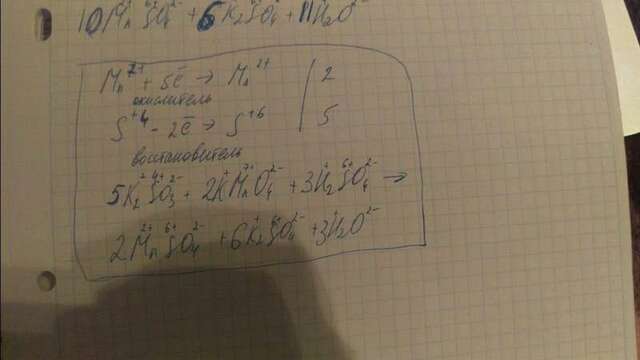 10MnSO4 + 6K2SO4 + 11H2O
Mn7+ + 5ē → Mn2+ | 2
окислитель
S+4 - 2ē → S+6 | 5
восстановитель
5K2SO3 + 2KMnO4 + 3H2SO4 →
2MnSO4 + 6K2SO4 + 3H2O